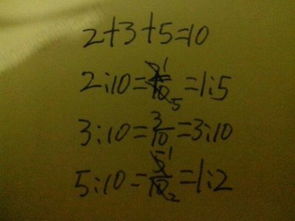 2+3+5=10
2:10=2/10=1:5
3:10=3/10=3:10
5:10=5/10=1:2